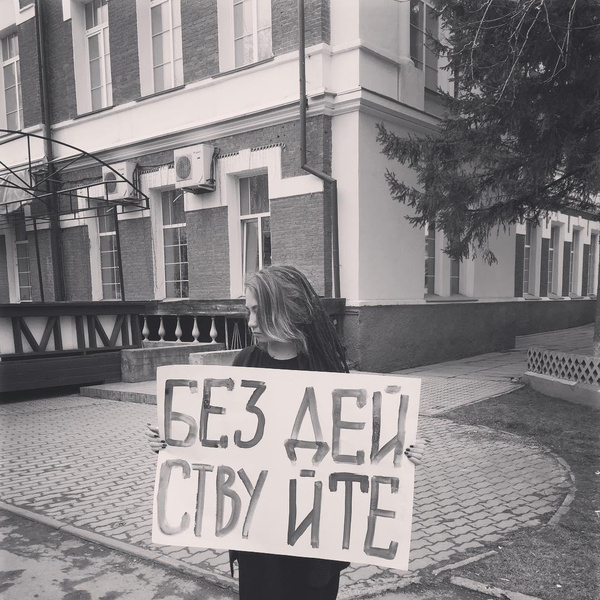 БЕЗ ДЕЙ
СТВУ ЙТЕ